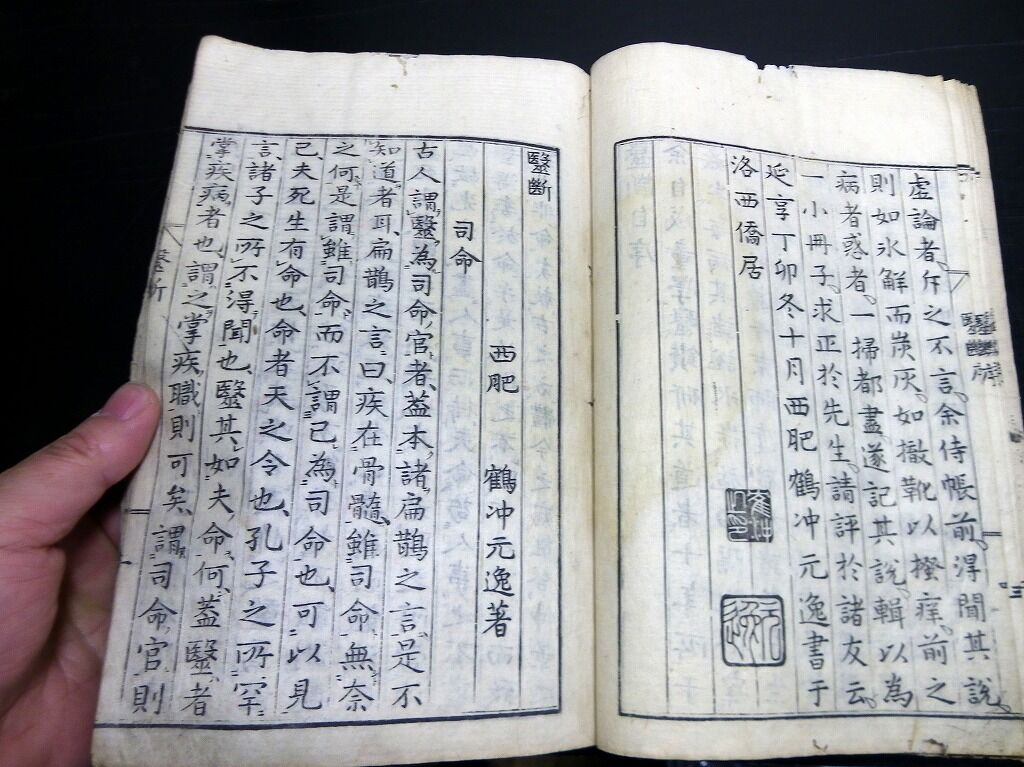 虚論者、斥之不言。余侍帳前、淂聞其説。
則如氷解而炭灰。如撤靴以撥痒。前之
病者惑者、一掃都盡。遂記其説、輯以為
一小冊子、求正於先生、請評於諸友云。
延享丁卯冬十月西肥鶴冲元逸書于
洛西僑居
元逸
毉斷
西肥 鶴冲元逸著
司命
古人謂毉為司命官者、蓋本諸扁鵲之言、是不
知道者耳、扁鵲之言曰、疾在骨髓、雖司命無奈
之何、是謂雖司命、而不謂己為司命也、可以見
已、夫死生有命也、命者天之令也、孔子之所罕
言、諸子之所不得聞也、毉其如夫命何、蓋毉者
掌疾病者也、謂之掌疾職則可矣、謂司命官、則
毉斷